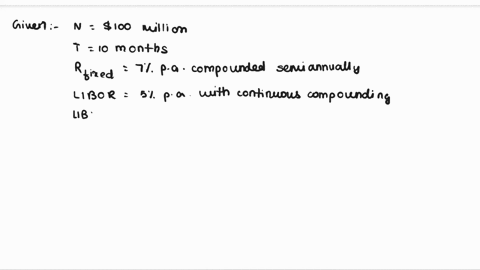 Given:- N = $100 million
T = 10 months
R fixed = 7% p.a. compounded semiannually
LIBOR = 5% p.a. with continuous compounding
LIB